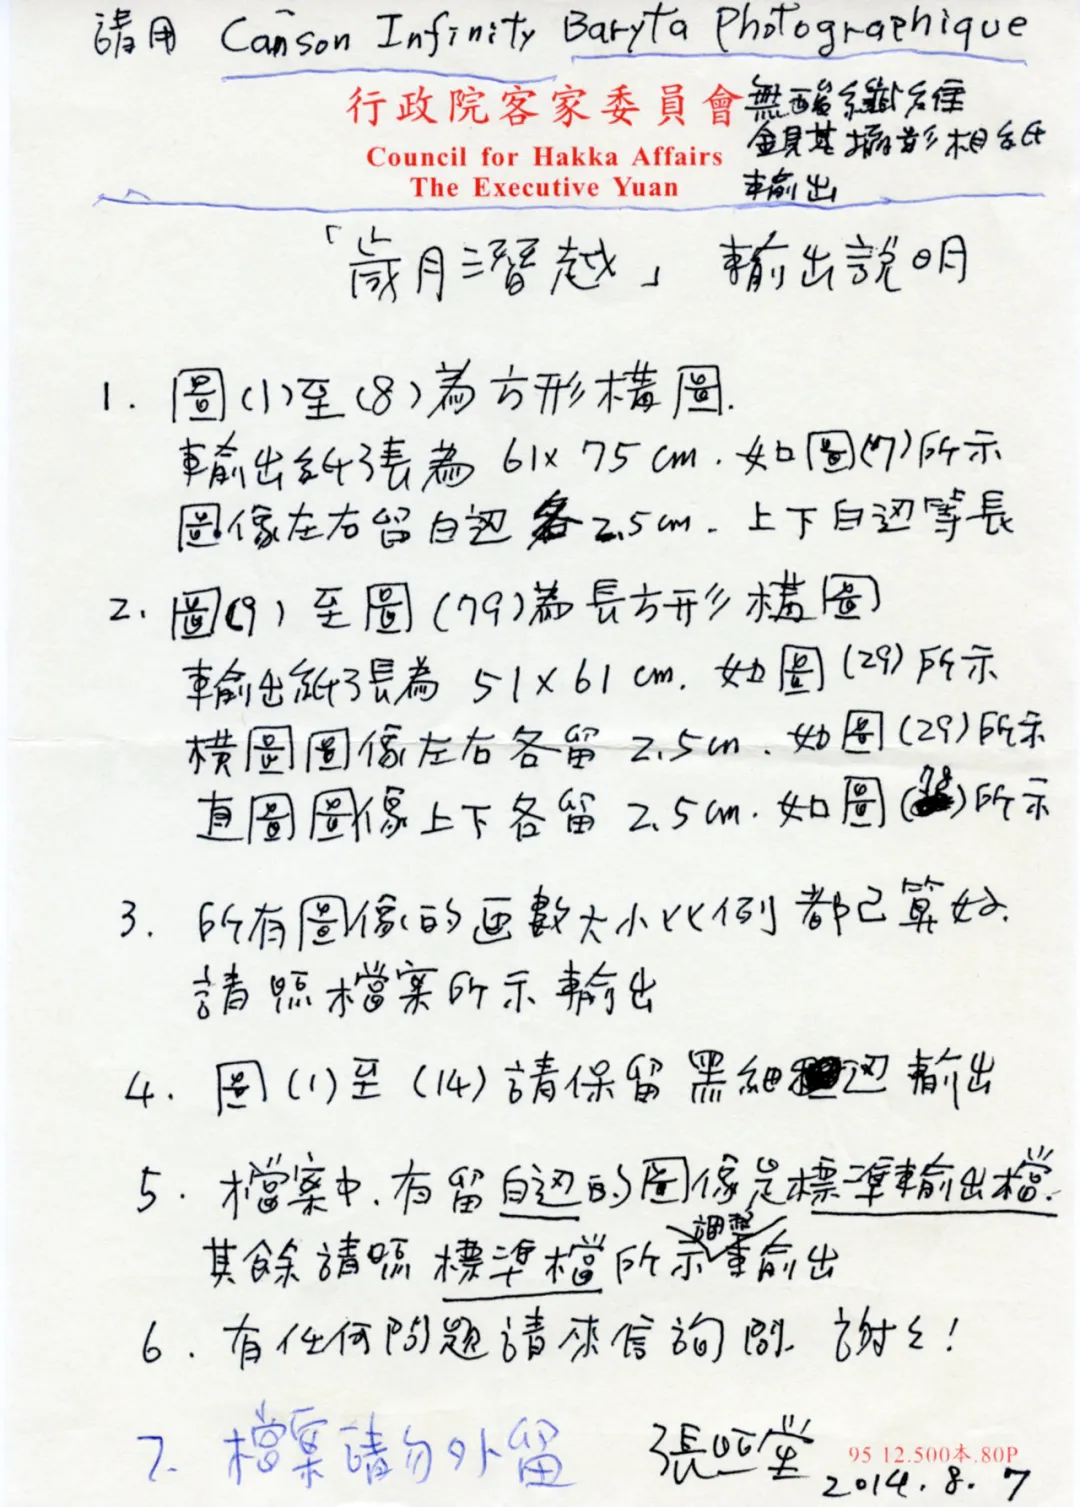 請用 Canson Infinity Baryta Photographique
行政院客家委員會
Council for Hakka Affairs
The Executive Yuan
無酸纖維
鋇基攝影相紙
輸出
「歲月潛越」 輸出說明
1. 圖(1)至(8)為方形構圖.
輸出紙張為 61x75cm. 如圖(7)所示
圖像左右留白边各2.5cm. 上下白边等長
2. 圖(9)至圖(79)為長方形構圖
輸出紙張為 51x61cm. 如圖(29)所示
橫圖圖像左右各留 2.5cm. 如圖(29)所示
直圖圖像上下各留 2.5cm. 如圖(78)所示
3. 所有圖像的画數大小比例都已算好.
請照檔案所示輸出
4. 圖(1)至(14)請保留黑細边輸出
5. 檔案中.有留白边的圖像是標準輸出檔.
其餘請照標準檔所示調整輸出
6. 有任何問題請來信詢問. 謝々!
7. 檔案請勿外留
張照堂
95 12.500本.80P
2014.8.7